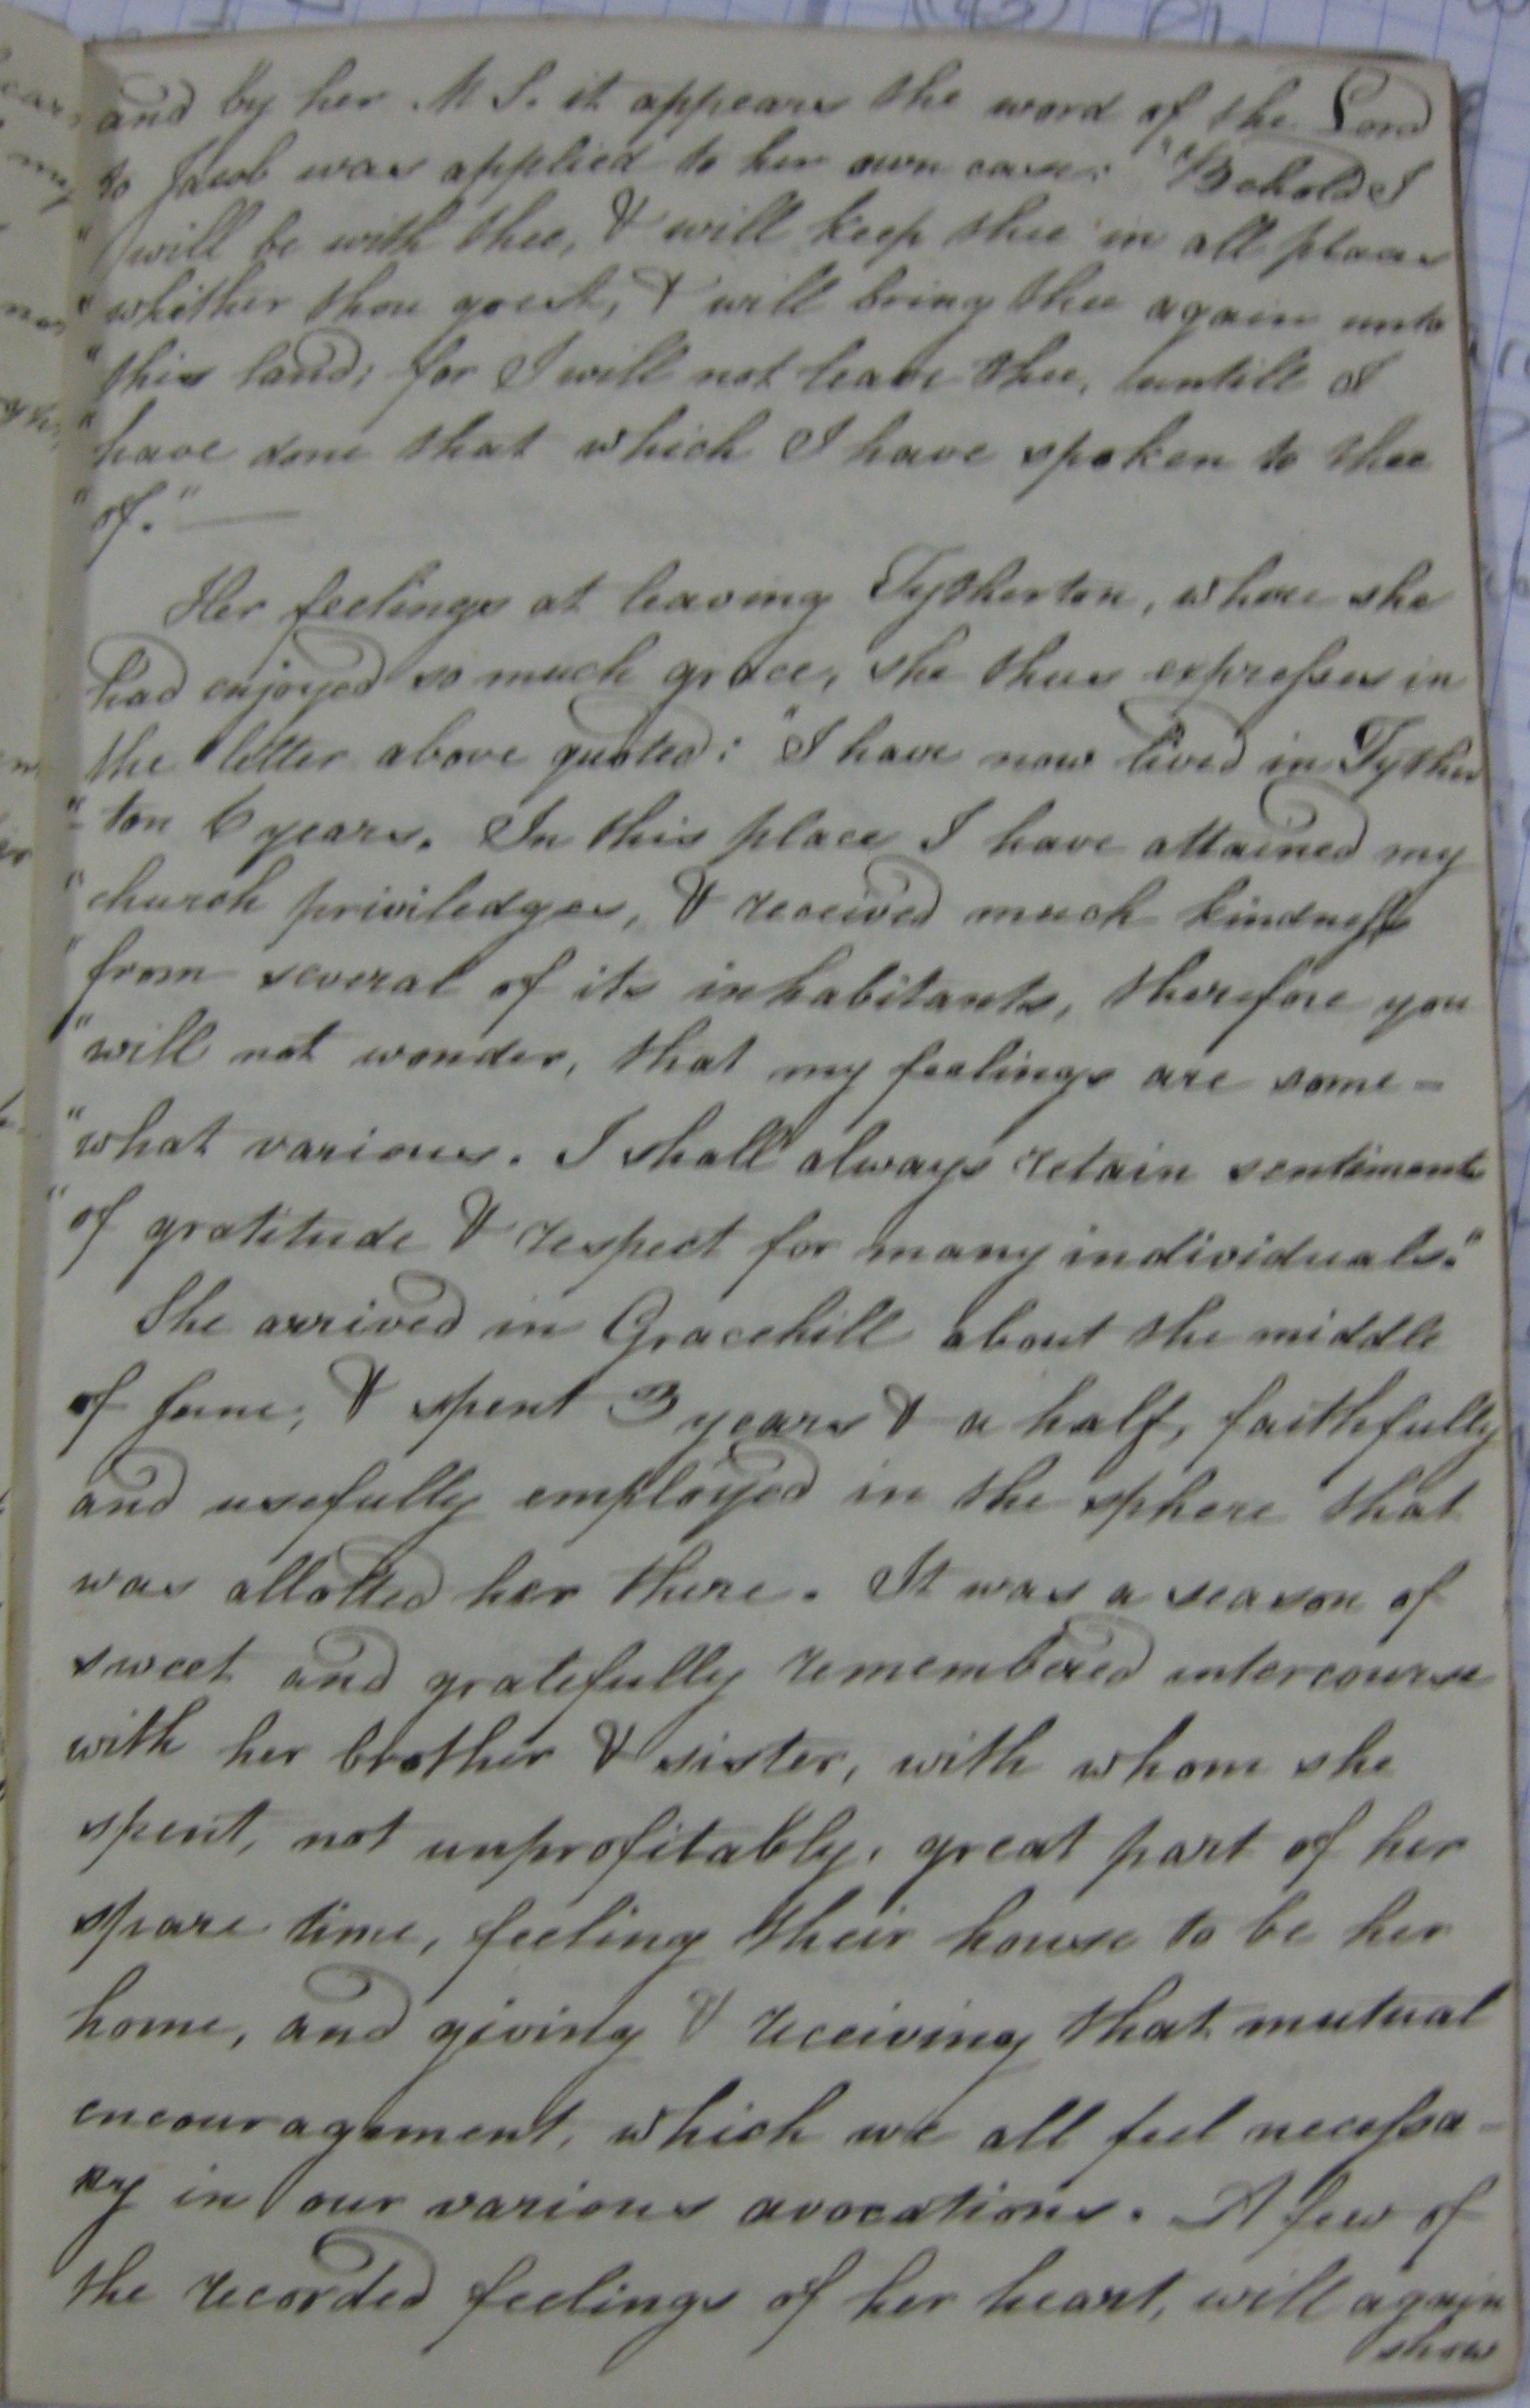 and by her M S. it appears the word of the Lord
to Jacob was applied to her own case: "Behold I
"will be with thee, & will keep thee in all places
"whither thou goest, & will bring thee again unto
"this land; for I will not leave thee, untill I
"have done that which I have spoken to thee
"of."—
Her feelings at leaving Tytherton, where she
had enjoyed so much grace, she thus expresses in
the letter above quoted: "I have now lived in Tyther
"-ton 6 years. In this place I have attained my
"church priviledges, & received much kindness
"from several of its inhabitants, therefore you
"will not wonder, that my feelings are some=
"what various. I shall always retain sentiments
"of gratitude & respect for many individuals."
She arrived in Gracehill about the middle
of June; & spent 3 years & a half, faithfully
and usefully employed in the sphere that
was allotted her there. It was a season of
sweet and gratefully remembered intercourse
with her brother & sister, with whom she
spent, not unprofitably, great part of her
spare time, feeling their house to be her
home, and giving & receiving that mutual
encouragement, which we all feel necessa-
ry in our various avocations. A few of
the recorded feelings of her heart, will again
show